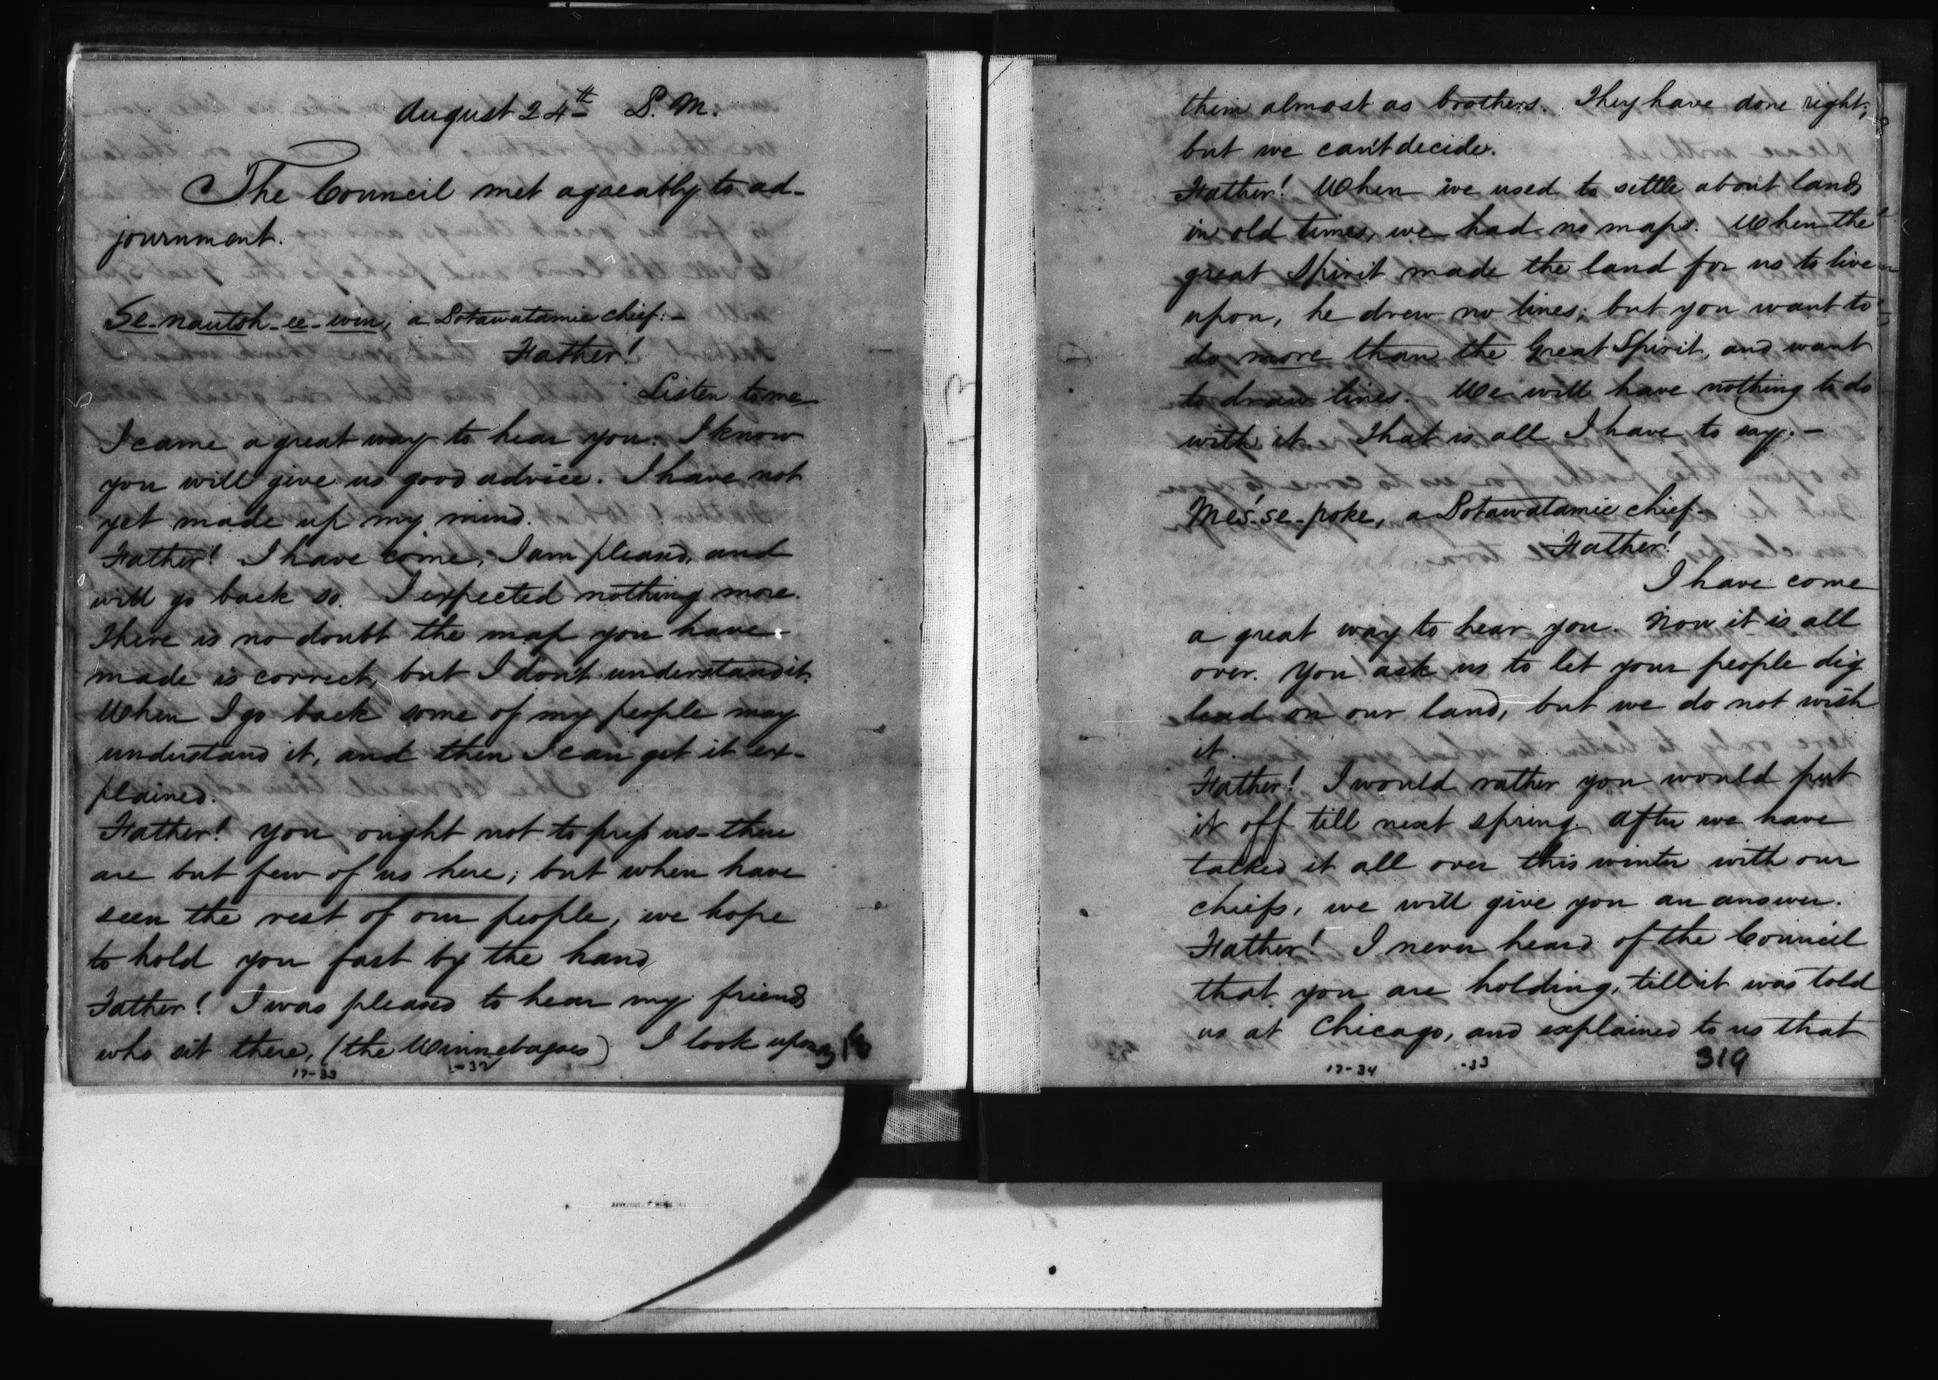 August 24th P.M.
The Council met agreably to ad-
journment.
Se-nautsh-ee-win, a Potawatamie chief:-
Father!
Listen to me
I came a great way to hear you. I know
you will give us good advice. I have not
yet made up my mind.
Father! I have come, I am pleased, and
will go back so. I expected nothing more.
There is no doubt the map you have
made is correct, but I don't understand it.
When I go back some of my people may
understand it, and then I can get it ex-
plained.
Father! You ought not to press us - there
are but few of us here; but when have
seen the rest of our people, we hope
to hold you fast by the hand
Father! I was pleased to hear my friends
who sit there, (the Winnebagoes) I look upon
318
17-33 -32
them almost as brothers. They have done right;
but we can't decide.
Father! When we used to settle about lands
in old times, we had no maps. When the
great Spirit made the land for us to live
upon, he drew no lines; but you want to
do more than the Great Spirit, and want
to draw lines. We will have nothing to do
with it. That is all I have to say.-
Mes-se-poke, a Potawatamie chief-
Father!
I have come
a great way to hear you. Now it is all
over. You ask us to let your people dig
lead on our land, but we do not wish
it.
Father! I would rather you would put
it off till next spring. After we have
talked it all over this winter with our
chiefs, we will give you an answer.
Father! I never heard of the Council
that you are holding, till it was told
us at Chicago, and explained to us that
17-34 -33 319